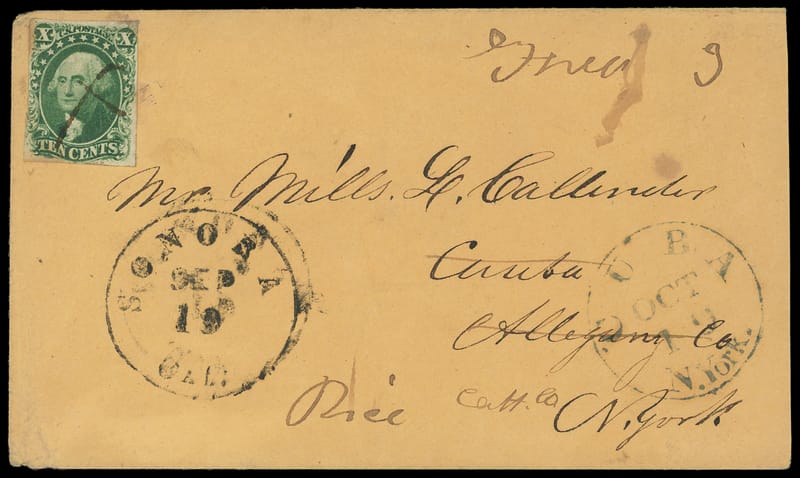 X U.S. POSTAGE X
TEN CENTS
Forwd 3
Mr. Mills. L. Callender
Cuba
Allegany Co
N. York
SONORA
SEP
19
CAL.
CUBA
OCT
N.York.
Rice
Catt. Co